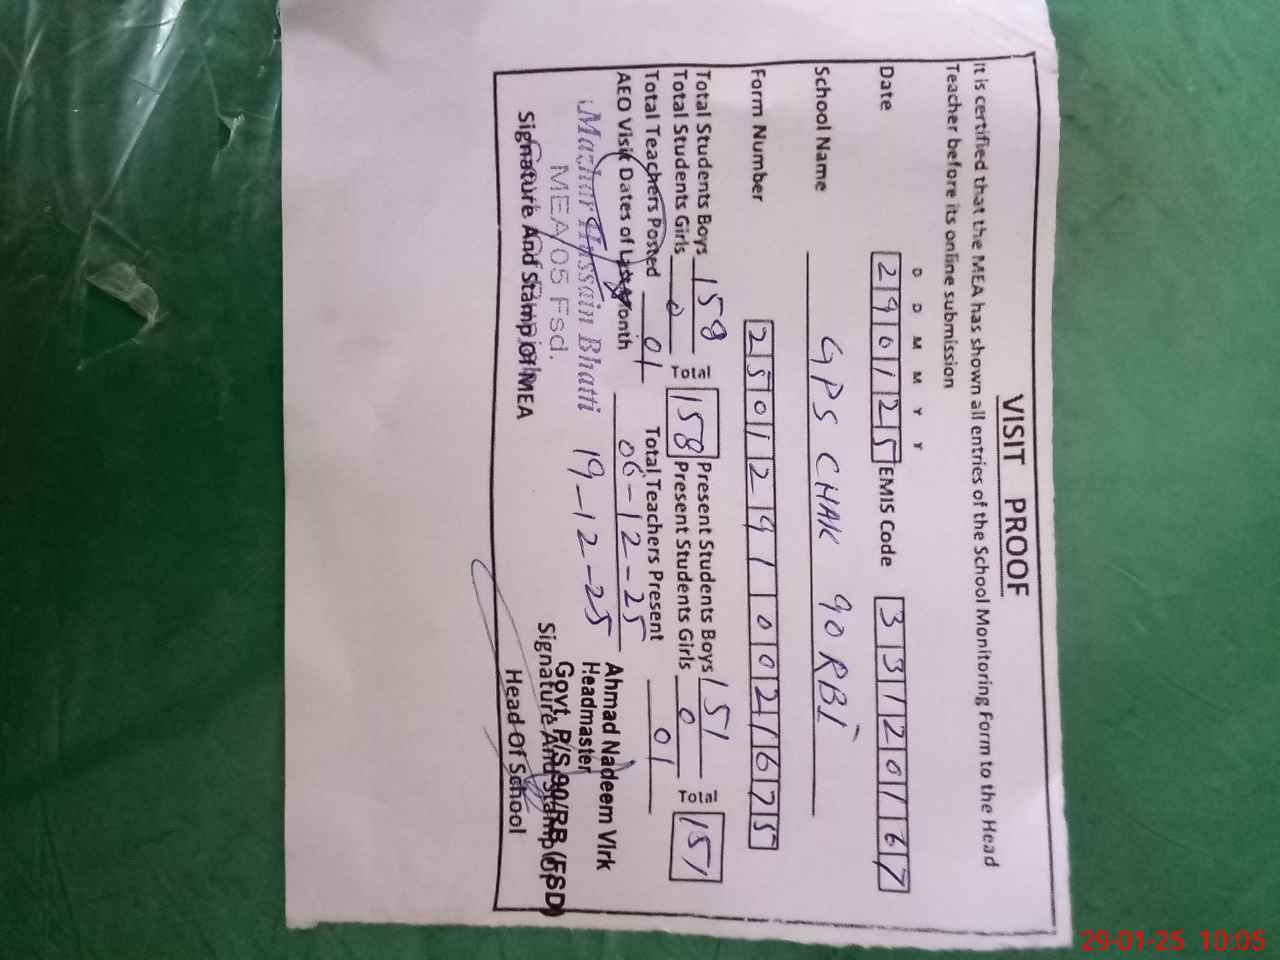 VISIT PROOF
It is certified that the MEA has shown all entries of the School Monitoring Form to the Head
Teacher before its online submission
D D M M Y Y
Date 290125 EMIS Code 33120167
School Name GPS CHAK 90RBI
Form Number 250129 1002 1675
Total Students Boys 158 Present Students Boys 151
Total Students Girls 0 Total 158 Present Students Girls 0 Total 151
Total Teachers Posted 01 Total Teachers Present 01
AEO Visit Dates of Last Month 06-12-25
19-12-25
Mazhar Hussain Bhatti
MEA/05 Fsd.
Signature And Stamp Of MEA
Ahmad Nadeem Virk
Headmaster
Govt. P/S 90/RB (FSD)
Signature And Stamp Of
Head Of School
29-01-25 10:05